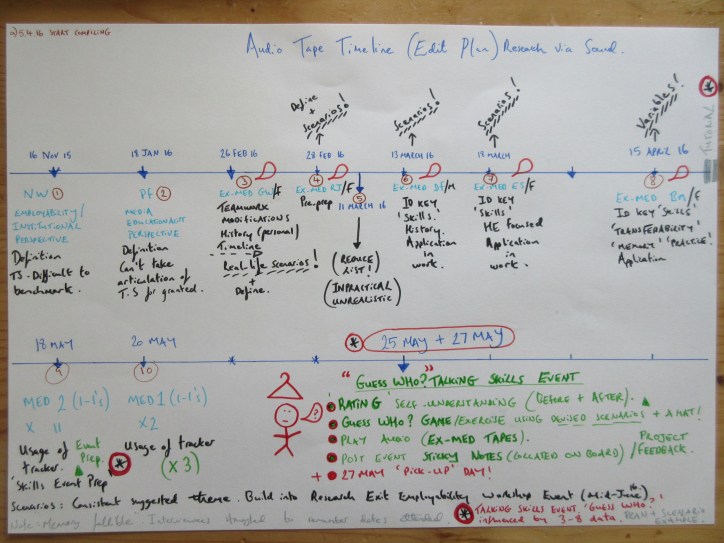 5.4.16 START COMPILING
Audio Tape Timeline (Edit Plan) Research via Sound.
TUTORIAL
Define + Scenarios!
Scenarios!
Scenarios!
Variables!
16 NOV 15
18 JAN 16
26 FEB 16
28 FEB 16
13 MARCH 16
18 MARCH
15 APRIL 16
NW 1
EMPLOYABILITY/
INSTITUTIONAL
PERSPECTIVE
Definition
TS-Difficult to
benchmark.
PF 2
MEDIA
EDUCATIONALIST
PERSPECTIVE
Definition
Can't take
articulation of
T.S for granted.
3
EX-MED GW/F
TEAMWORK
MODIFICATIONS
History (personal)
Timeline
Real life scenarios!
+
Define.
4
EX-MED RJ/F
Pre-prep
5
11 MARCH 16
(REDUCE
LIST!)
(IMPRACTICAL
UNREALISTIC)
6
EX-MED DF/M
ID KEY
'Skills'.
History.
Application
in
work.
7
EX-MED ES/F
ID KEY
'Skills'
HE focused
Application
in
work.
8
EX-MED BM/F
ID KEY 'SKILLS'
'TRANSFERABILITY'
'MEMORY' 'PRACTICE'
Application
18 MAY
20 MAY
25 MAY + 27 MAY
9
10
MED 2 (1-1's)
X 11
Usage of
tracker.
Event
Prep.
'Skills Event Prep'
MED 1 (1-1's)
X2
Usage of tracker
(X3)
"GUESS WHO?" TALKING SKILLS EVENT
RATING SELF-UNDERSTANDING (BEFORE + AFTER).
GUESS WHO? GAME/EXERCISE USING DEVISED SCENARIOS + A HAT!
PLAY AUDIO (EX-MED TAPES).
POST EVENT STICKY NOTES (COLLATED ON BOARD)
PROJECT
/FEEDBACK.
+ 27 MAY 'PICK-UP' DAY!
Scenarios: Consistent suggested theme. Build into Research Exit Employability Workshop Event (Mid-June 16).
Note: Memory fallible. Interviewees struggled to remember dates attended.
TALKING SKILLS EVENT 'GUESS WHO?'
influenced by 3-8 data.
SCENARIO
EXAMPLE.